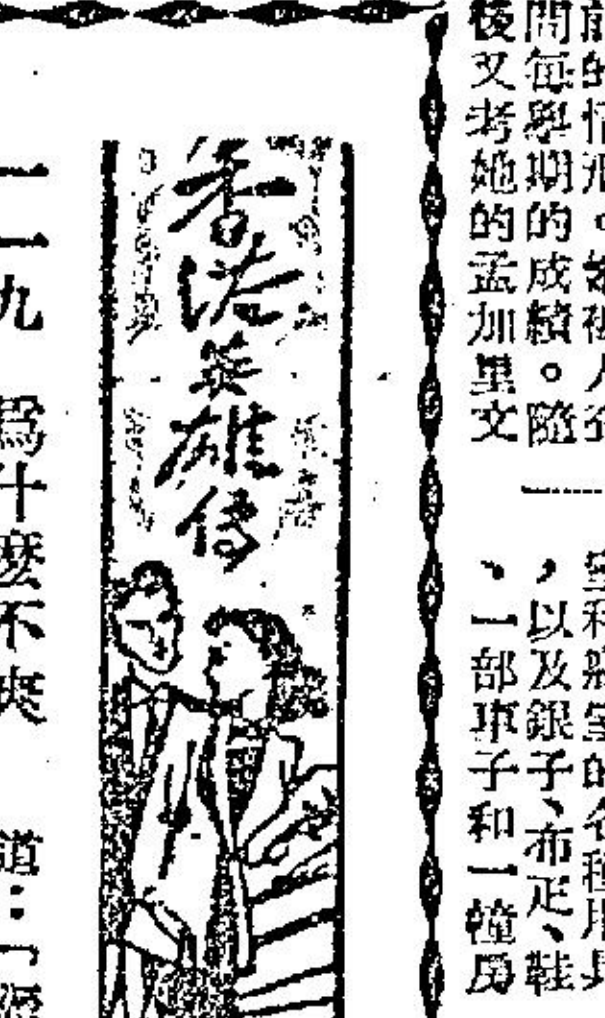 問每學期的成績。隨
後又考她的孟加里文
，以及銀子、布疋、鞋
、一部車子和一幢房
香港英雄傳
一一九 為什麼不爽
道：「經